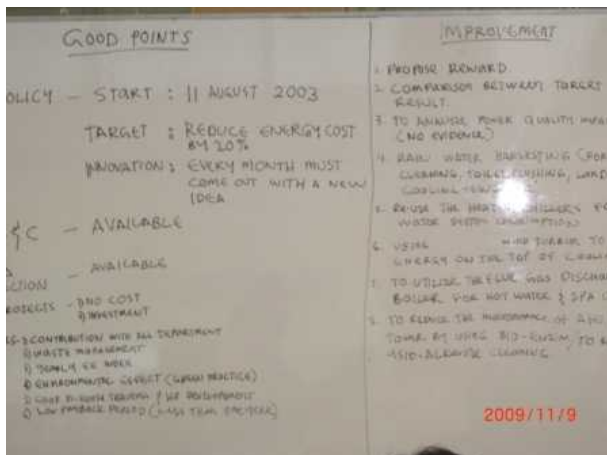 GOOD POINTS
OLICY - START : 11 AUGUST 2003
TARGET : REDUCE ENERGY COST
BY 20%
INNOVATION : EVERY MONTH MUST
COME OUT WITH A NEW
IDEA
& C - AVAILABLE
CTION - AVAILABLE
ROJECTS - NO COST
INVESTMENT
CONTRIBUTION WITH ALL DEPARTMENT
WASTE MANAGEMENT
YEARLY EE INDEX
ENVIRONMENTAL EFFECT (GREEN PRACTICE)
LOW PAYBACK PERIOD (LESS THAN
IMPROVEMENT
1. PROPOSE REWARD
2. COMPARISON BETWEEN TARGET
RESULT.
3. TO ANALYSE POWER QUALITY
(NO EVIDENCE)
4. RAIN WATER HARVESTING (FOR
CLEANING, TOILET FLUSHING,
COOLING
5. RE-USE THE CHILLERS
WATER
6. USING WIND TURBINE TO
ENERGY ON THE TOP OF
7. TO UTILISE THE FLUE GAS
BOILER FOR HOT WATER & SPA
8. TO REDUCE THE OF
TOWER BY USING BIO-ENZIM, TO
CLEANING
2009/11/9